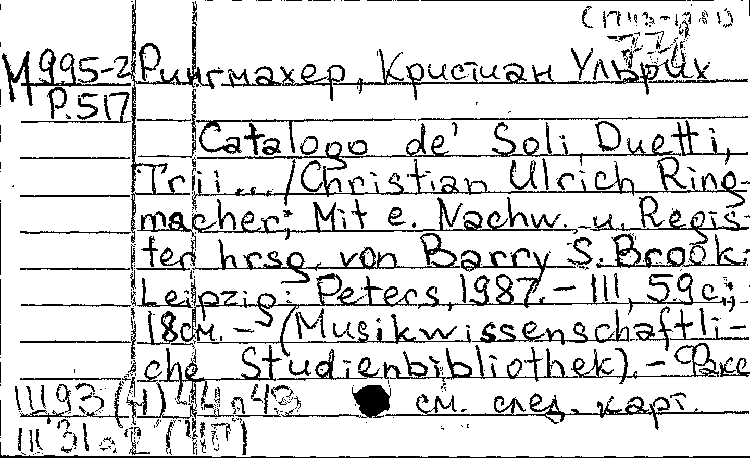 (1743-1781)
778
М995-2 Рингмахер, Кристиан Ульрих
P.517
Catalogo de' Soli, Duetti,
Trii... /Christian Ulrich Ring-
macher; Mit e. Nachw. u. Regis-
ter hrsg. von Barry S. Brook.
Leipzig: Peters, 1987. - III, 59 с.;
18см. - (Musikwissenschaftli-
che Studienbibliothek). - Факс
Щ93(4)44я43 см. след. карт.